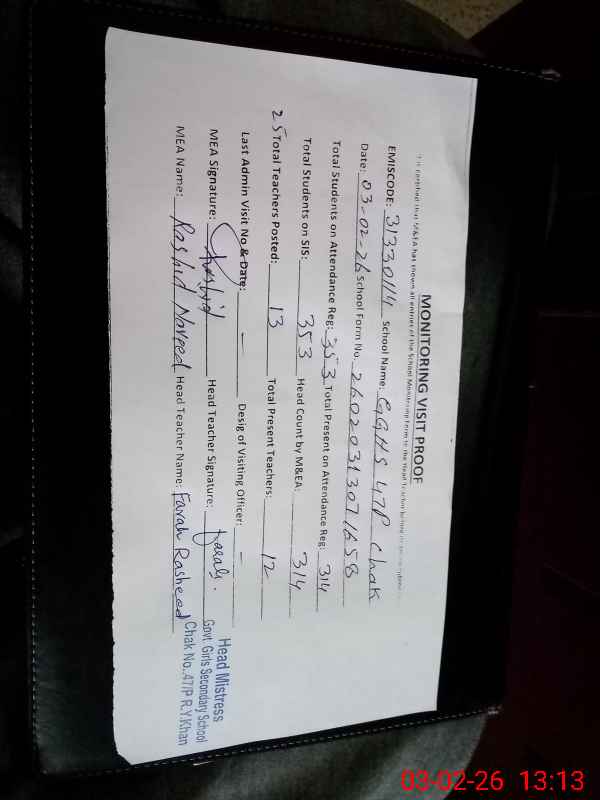 MONITORING VISIT PROOF
It is certified that M&EA has shown all entries of the School Monitoring Form to the Head Teacher before
EMISCODE: 31330114 School Name: GGHS 47P Chak
Date: 03-02-26 School Form No. 26020313071658
Total Students on Attendance Reg: 353 Total Present on Attendance Reg: 314
Total Students on SIS: 353 Head Count by M&EA: 314
25 Total Teachers Posted: 13 Total Present Teachers: 12
Last Admin Visit No & Date: - Desig of Visiting Officer: -
MEA Signature: Rashid Head Teacher Signature: Farah.
MEA Name: Rashid Naveed Head Teacher Name: Farah Rasheed
Head Mistress
Govt. Girls Secondary School
Chak No..47/P R.Y.Khan
03-02-26 13:13